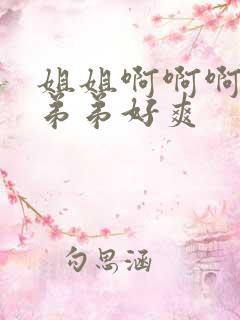 姐姐啊啊啊
弟弟好爽
勾思涵